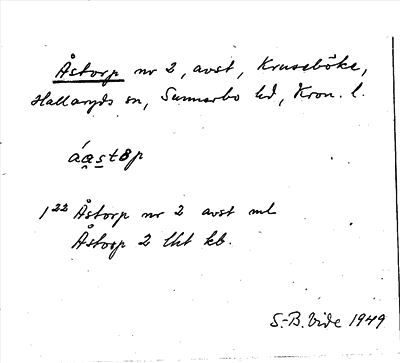 Åstorp nr 2, avst, Kruseböke,
Hallaryds sn, Sunnerbo hd, Kron. l.
áa̯s̲t8p
1²² Åstorp nr 2 avst ml
Åstorp 2 lht kb.
S.-B. Vide 1949